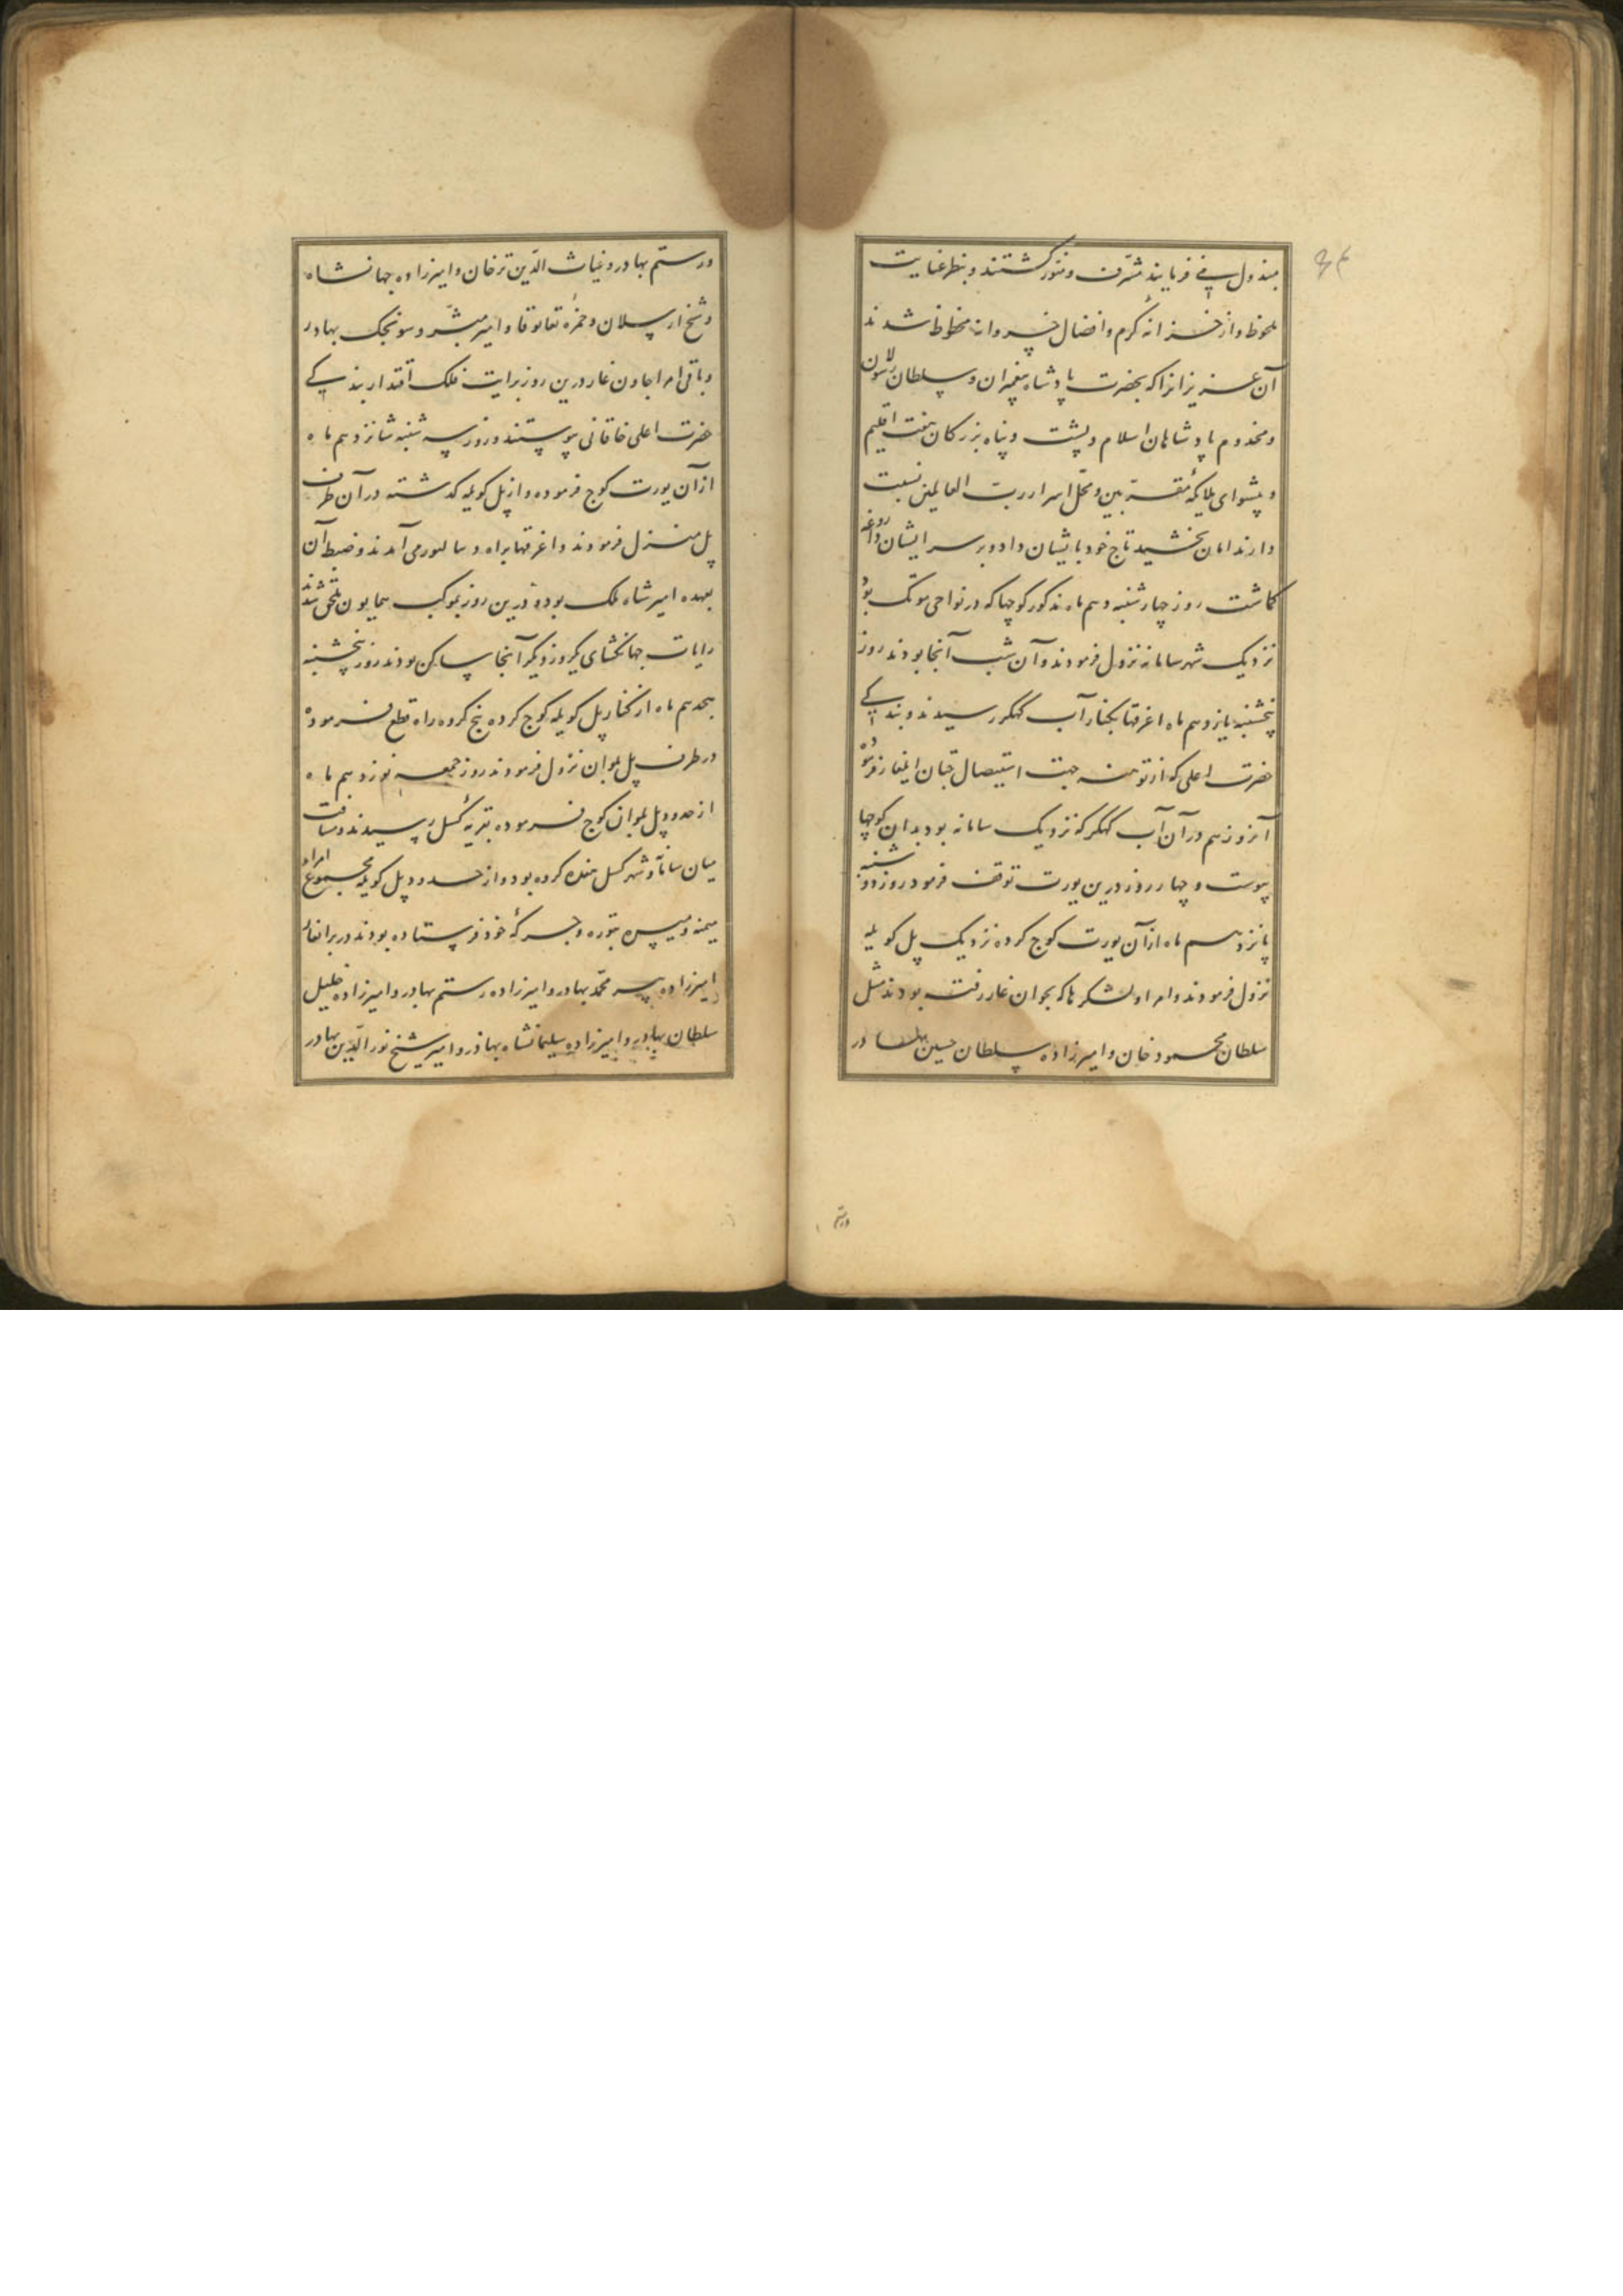 مبذول می فرمایند مشرّف و منوّر گشتند و بنظر عنایت
ملحوظ و از خزانهٔ کرم و افضال خسروانه محظوظ شدند
آن عزیزانرا که بحضرت پادشاه پیغمبران و سلطان رسولان
و مخدوم پادشاهان اسلام و پشت و پناه بزرکان هفت اقلیم
و پیشوای ملایکهٔ مقرّبین و محل اسرار ربّ العالمین نسبت
دارند امان بخشید تاج خود بایشان داد و بر سر ایشان داروغه
کماشت روز چهارشنبه دهم ماه مذکور کوچها که در نواحی مونک بود
نزدیک شهر سامانه نزول فرمودند و آن شب آنجا بودند روز
پنجشنبه یازدهم ماه اغرقها بکنار آب کهکر رسیدند و بندکی
حضرت اعلی که از توهنه جهت استیصال جتان ایلغار فرموده
آنروز هم در آن آب کهکر که نزدیک سامانه بود بدان کوچها
پیوست و چهار روز درین یورت توقف فرمود روز دوشنبه
پانزدهم ماه از آن یورت کوچ کرده نزدیک پل کوبله
نزول فرمودند و امرا و لشکرها که بجوان غار رفته بودند مثل
سلطان محمود خان و امیرزاده سلطان حسین بهادر
ورستم
ورستم بهادر و غیاث الدّین ترخان و امیرزاده جهانشاه
و شیخ ارسلان و حمزهٔ تغابوقا و امیر مبشّر و سونجک بهادر
و باقی امرا جاون غار درین روز برایت فلک اقتدار بندکی
حضرت اعلی خاقانی پیوستند و روز سه شنبه شانزدهم ماه
از آن یورت کوچ فرموده و از پل کوبله کدشته در آن طرف
پل منزل فرمودند و اغرقها براه دیبالبور می آمدند و ضبط آن
بعهده امیر شاه ملک بوده درین روز بموکب همایون ملحق شدند
رایات جهانکشای یکروز دیکر آنجا ساکن بودند روز پنجشنبه
هجدهم ماه از کنار پل کوبله کوچ کرده پنج کروه راه قطع فرموده
در طرف پل بلوان نزول فرمودند روز جمعه نوزدهم ماه
از حدود پل بلوان کوچ فرموده بقریهٔ کسل رسیدند و مسافت
میان سامانه و شهر کسل هفده کروه بود و از حدود پل کوبله مجموع امراء
میمنه و میسره بتوره و جرکهٔ خود فرستاده بودند در برانغار
امیرزاده پیر محمّد بهادر و امیرزاده رستم بهادر و امیرزاده خلیل
سلطان بهادر و امیرزاده سلیمانشاه بهادر و امیر شیخ نور الدّین بهادر